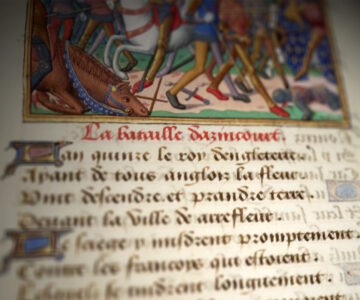 La bataille dazincourt.
Lan quinze le roy dengleterre
Ayant de tous anglois la fleur
Vint descendre et prandre terre
Deuant la ville de arrefleur
Le siege y misdrent promptement
Contre les francoys qui estoient
Et le tindrent longuement